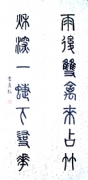 雨後雙禽來占竹
秋深一蜨下尋華